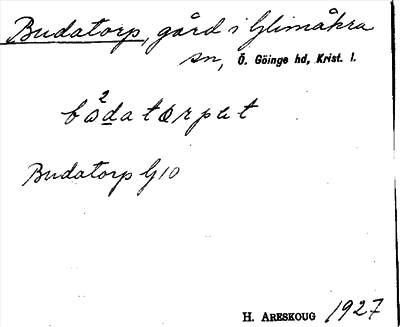 Budatorp, gård i Glimåkra
sn, Ö. Göinge hd, Krist. l.
2
bodatorpet
Budatorp G10
H. ARESKOUG 1927